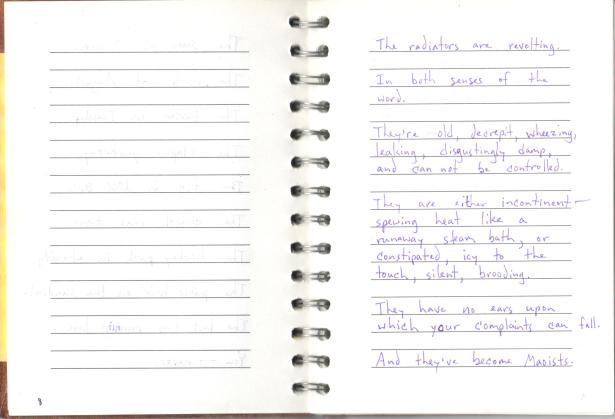 The radiators are revolting.
In both senses of the
word.
They're old, decrepit, wheezing,
leaking, disgustingly damp,
and can not be controlled.
They are either incontinent—
spewing heat like a
runaway steam bath, or
constipated, icy to the
touch, silent, brooding.
They have no ears upon
which your complaints can fall.
And they've become Maoists.
8